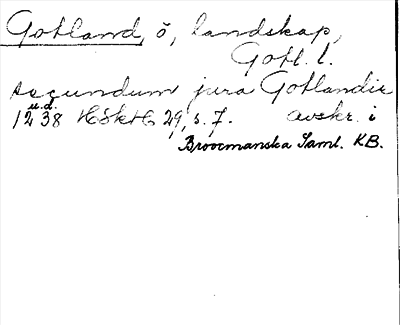 Gotland, ö, landskap,
Gotl. l.
secundum jura Gotlandie
u.d.
1238 HSkH 29, s. 7. avskr. i
Broocmanska Saml. KB.